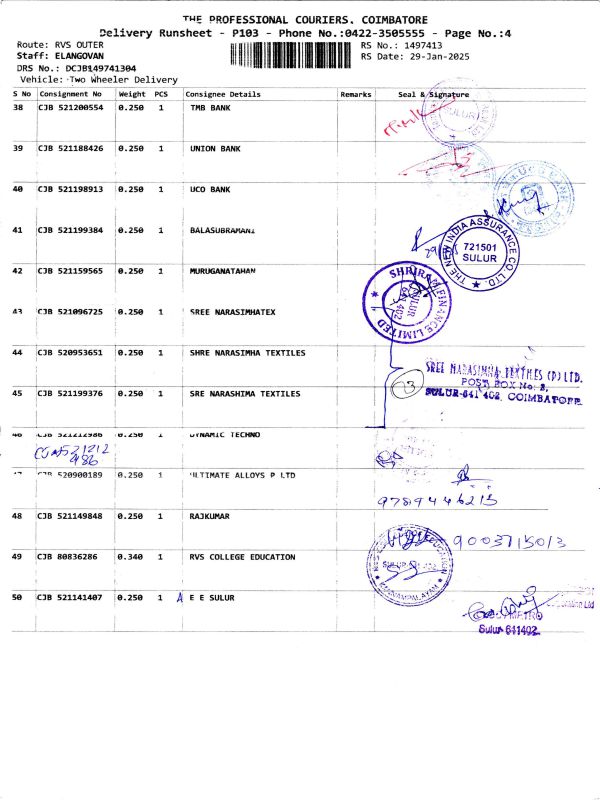 THE PROFESSIONAL COURIERS, COIMBATORE
Delivery Runsheet - P103 - Phone No.:0422-3505555 - Page No.:4
Route: RVS OUTER
RS No.: 1497413
Staff: ELANGOVAN
RS Date: 29-Jan-2025
DRS No.: DCJB149741304
Vehicle: Two Wheeler Delivery
S No Consignment No Weight PCS Consignee Details Remarks Seal & Signature
38 CJB 521200554 0.250 1 TMB BANK
SULUR
39 CJB 521188426 0.250 1 UNION BANK
40 CJB 521198913 0.250 1 UCO BANK
41 CJB 521199384 0.250 1 BALASUBRAMANI
THE NEW INDIA ASSURANCE CO. LTD.
721501
SULUR
42 CJB 521159565 0.250 1 MURUGANATAHAN
SHRIRAM FINANCE LIMITED
SULUR
43 CJB 521096725 0.250 1 SREE NARASIMHATEX
44 CJB 520953651 0.250 1 SHRE NARASIMHA TEXTILES
SREE NARASIMHA TEXTILES (P) LTD.
POST BOX No: 2,
SULUR-641 402, COIMBATORE
45 CJB 521199376 0.250 1 SRE NARASHIMA TEXTILES
46 CJB 521212986 0.250 1 DYNAMIC TECHNO
521212
986
CJB 520900189 0.250 1 ULTIMATE ALLOYS P LTD
9789446215
48 CJB 521149848 0.250 1 RAJKUMAR
9003715013
49 CJB 80836286 0.340 1 RVS COLLEGE EDUCATION
KANNAMPALAYAM
50 CJB 521141407 0.250 1 A E E SULUR
Sulur 641402